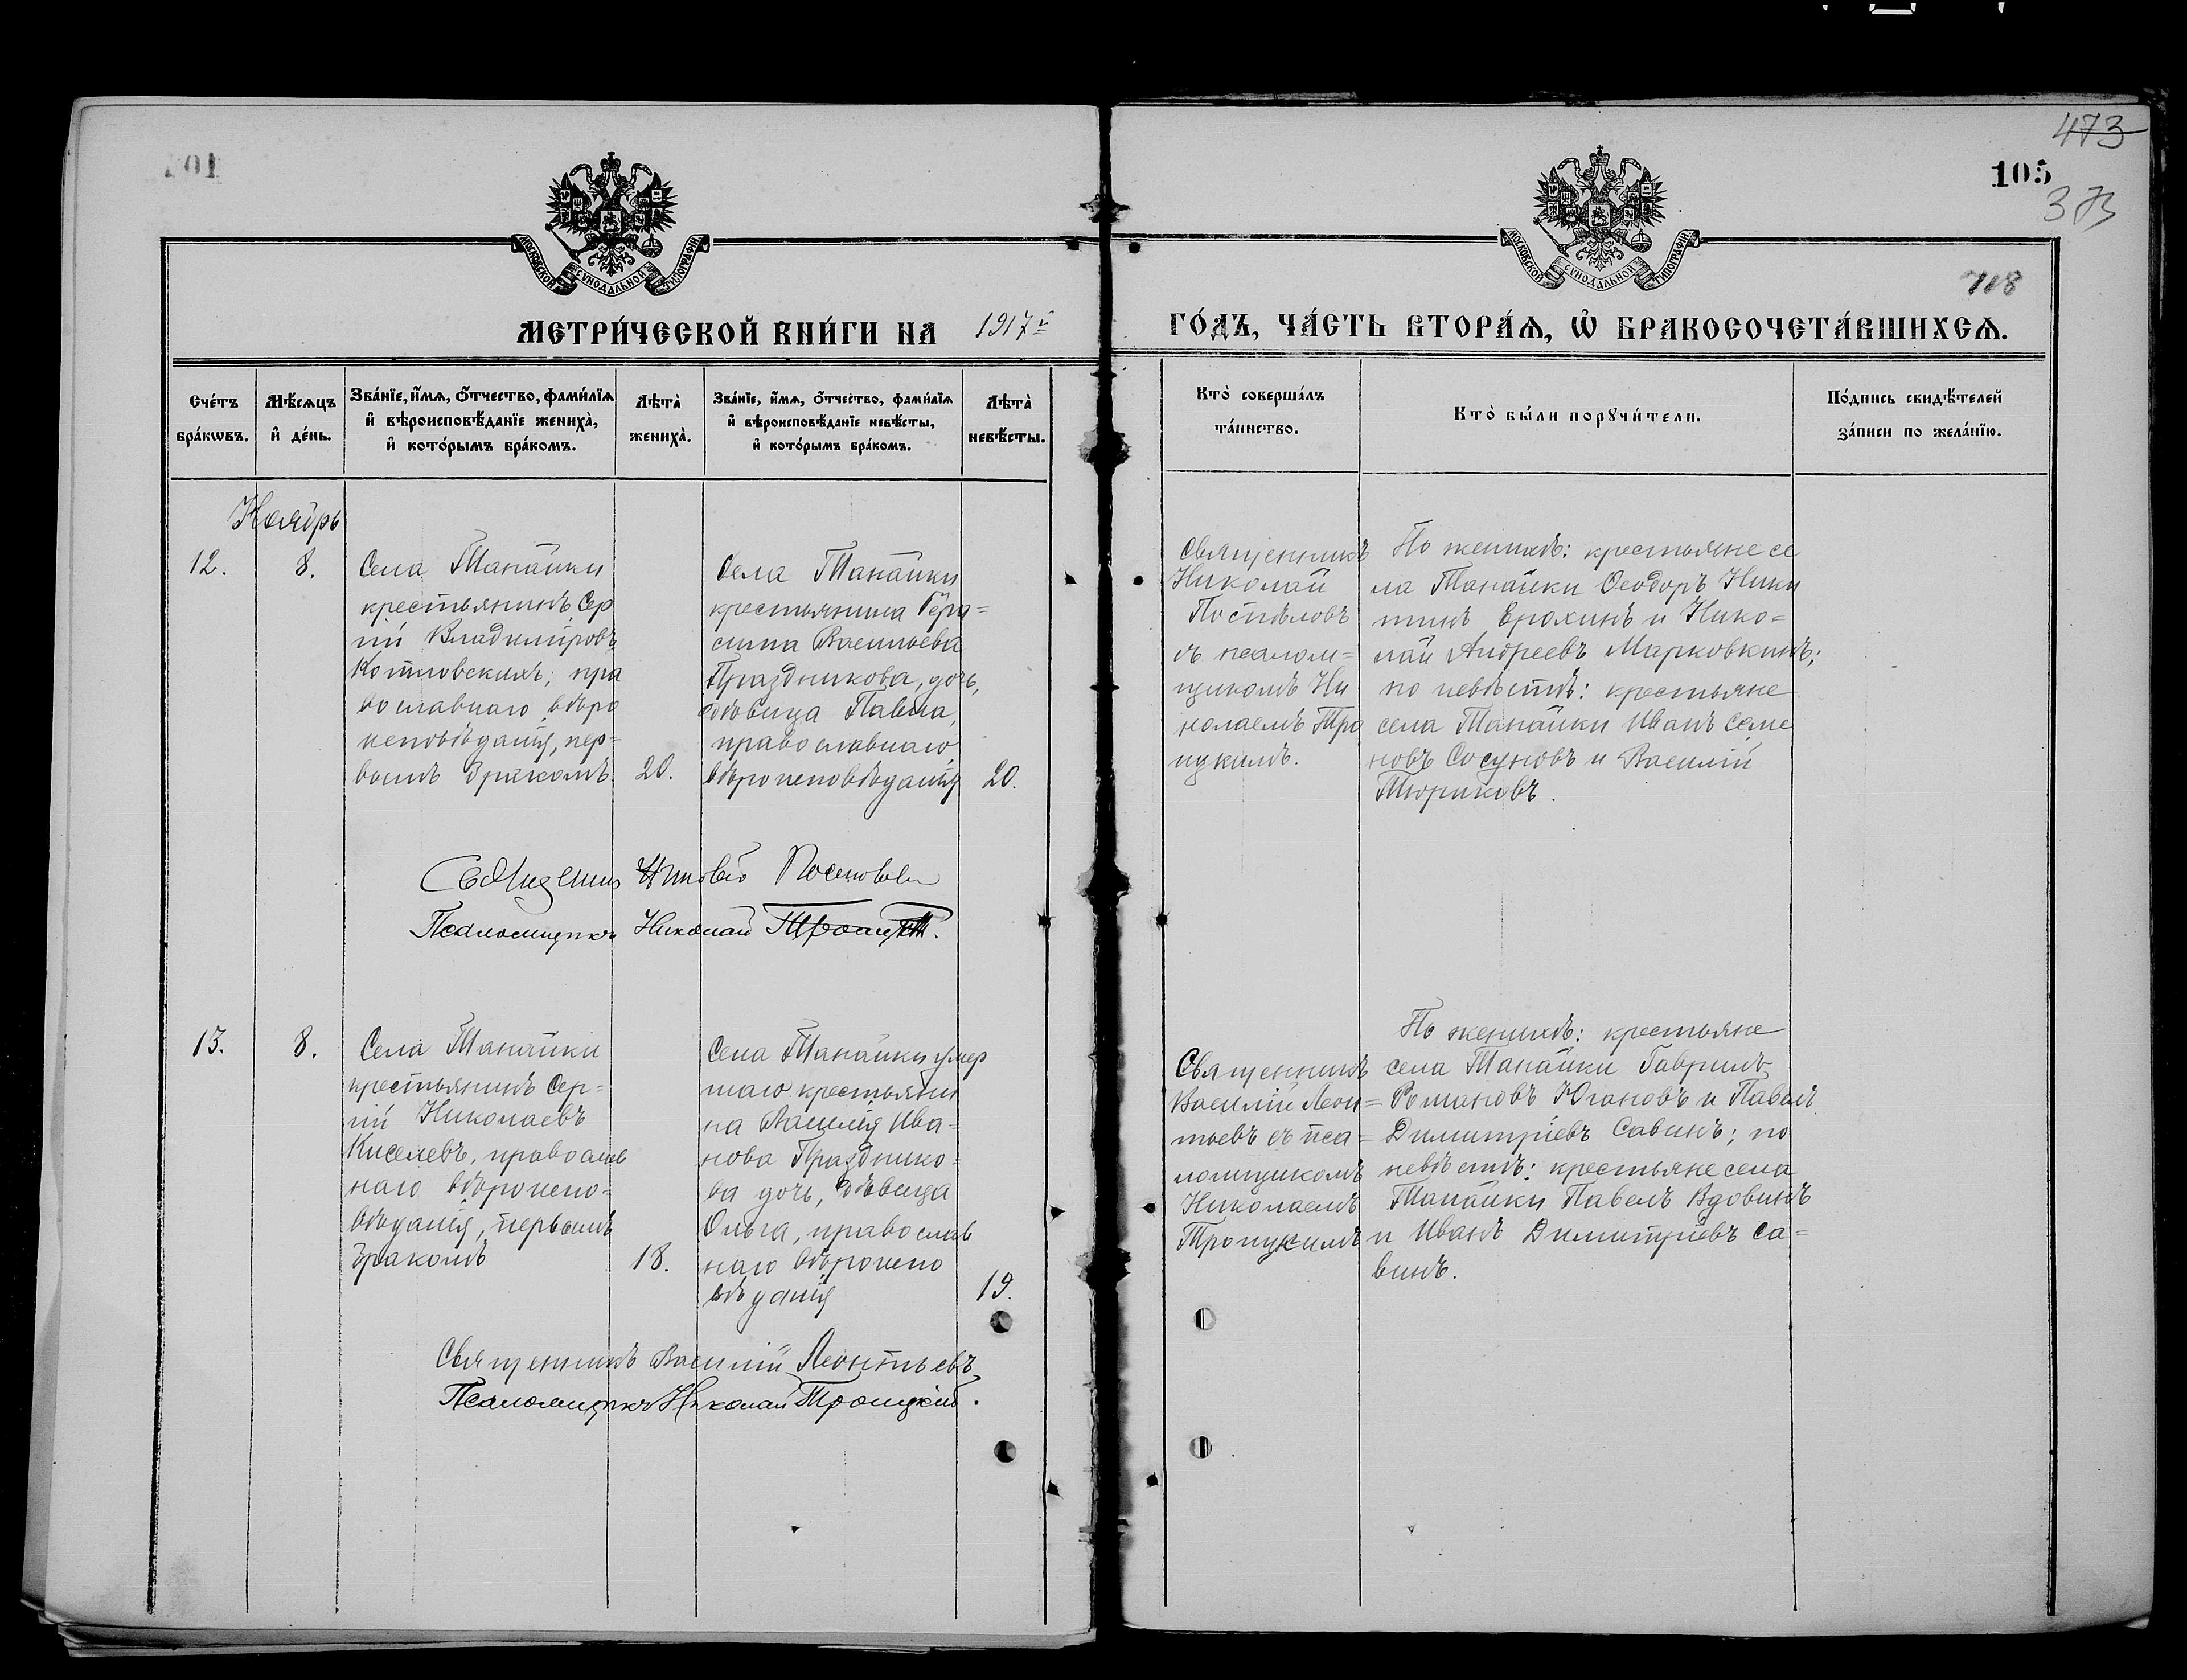 473
105
373
718
МОСКОВСКОЙ СУНОДАЛЬНОЙ ТИПОГРАФІИ
МОСКОВСКОЙ СУНОДАЛЬНОЙ ТИПОГРАФІИ
МЕТРИ́ЧЕСКОЙ КНИ́ГИ НА 1917й
ГО́ДЪ, ЧА́СТЬ ВТОРА́Ѧ, Ѡ҆ БРАКОСОЧЕТА́ВШИХСѦ.
Сче́тъ
бра́кѡвъ.
Мѣ́сѧцъ
и҆ де́нь.
Зва́нїе, и҆́мѧ, ѻ҆́тчество, фами́лїѧ
и҆ вѣроисповѣ́данїе жениха̀,
и҆ кото́рымъ бра́комъ.
Лѣ́та̀
жениха̀.
Зва́нїе, и҆́мѧ, ѻ҆́тчество, фами́лїѧ
и҆ вѣроисповѣ́данїе невѣ́сты,
и҆ кото́рымъ бра́комъ.
Лѣ́та̀
невѣ́сты.
Кто̀ соверша́лъ
та́инство.
Кто̀ бы́ли порꙋчи́тели.
По́дпись свидѣ́телей
за́писи по жела́нїю.
Ноябрь
12.
8.
Села Танайки
крестьянинъ Сер
гій Владиміровъ
Котловскихъ, пра
вославнаго вѣро
исповѣданія, пер=
вымъ бракомъ
20.
Села Танайки
крестьянина Гера=
сима Васильева
Праздникова, дочь,
дѣвица Павла,
православнаго
вѣроисповѣданія
20.
Священникъ
Николай
Поспѣловъ
съ псалом=
щикомъ Ни
колаемъ Тро
ицкимъ.
По женихѣ: крестьяне се
ла Танайки Ѳеодоръ Ники
тинъ Ерохинъ и Нико=
лай Андреевъ Марковкинъ;
по невѣстѣ: крестьяне
села Танайки Иванъ Семе
новъ Сосуновъ и Василій
Тюриковъ.
Священникъ Николай Поспѣловъ
Псаломщикъ Николай Троицкій.
13.
8.
Села Танайки
крестьянинъ Сер=
гій Николаевъ
Киселевъ, православ
наго вѣроиспо=
вѣданія, первымъ
бракомъ
18.
Села Танайки умер
шаго крестьяни
на Василія Ива=
нова Празднико=
ва дочь, дѣвица
Ольга, православ
наго вѣроиспо
вѣданія
19.
Священникъ
Василій Леон=
тьевъ съ пса=
ломщикомъ
Николаемъ
Троицкимъ
По женихѣ: крестьяне
села Танайки Гавріилъ
Романовъ Югановъ и Павелъ
Димитріевъ Савинъ; по
невѣстѣ: крестьяне села
Танайки Павелъ Вдовинъ
и Иванъ Димитріевъ Са=
винъ.
Священникъ Василій Леонтьевъ
Псаломщикъ Николай Троицкій.